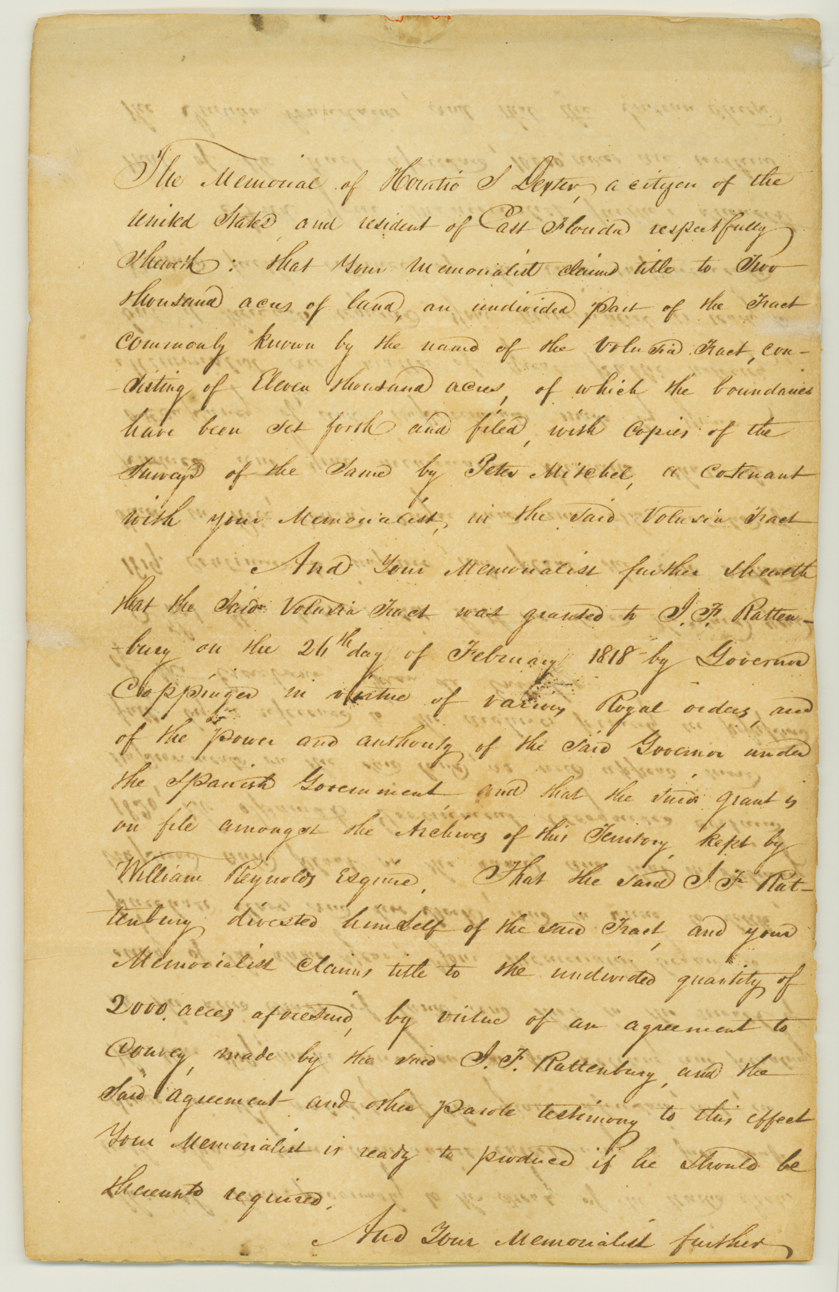 The Memorial of Horatio S Dexter, a citizen of the
United States and resident of East Florida respectfully
Sheweth: that Your Memorialist claims title to Two
thousand acres of land, an undivided part of the Tract
commonly known by the name of the Volusia Tract, con-
-sisting of Eleven thousand acres, of which the boundaries
have been set forth and filed, with copies of the
Surveys of the same by Peter Mitchel, a cotenant
with your Memorialist, in the said Volusia Tract
And Your Memorialist further sheweth
that the said Volusia Tract was granted to J. F. Ratten-
-bury on the 26th day of February 1818 by Governor
Coppinger in virtue of various Royal orders, and
of the power and authority of the said Governor under
the Spanish Government and that the said grant is
on file amongst the Archives of this Territory, kept by
William Reynolds Esquire. That the said J. F. Rat-
tenbury divested himself of the said Tract, and your
Memorialist claims title to the undivided quantity of
2000 acres aforesaid, by virtue of an agreement to
Convey, made by the said J. F. Rattenbury, and the
said agreement and other parole testimony to this effect
Your Memorialist is ready to produce if he should be
thereunto required.
And Your Memorialist further